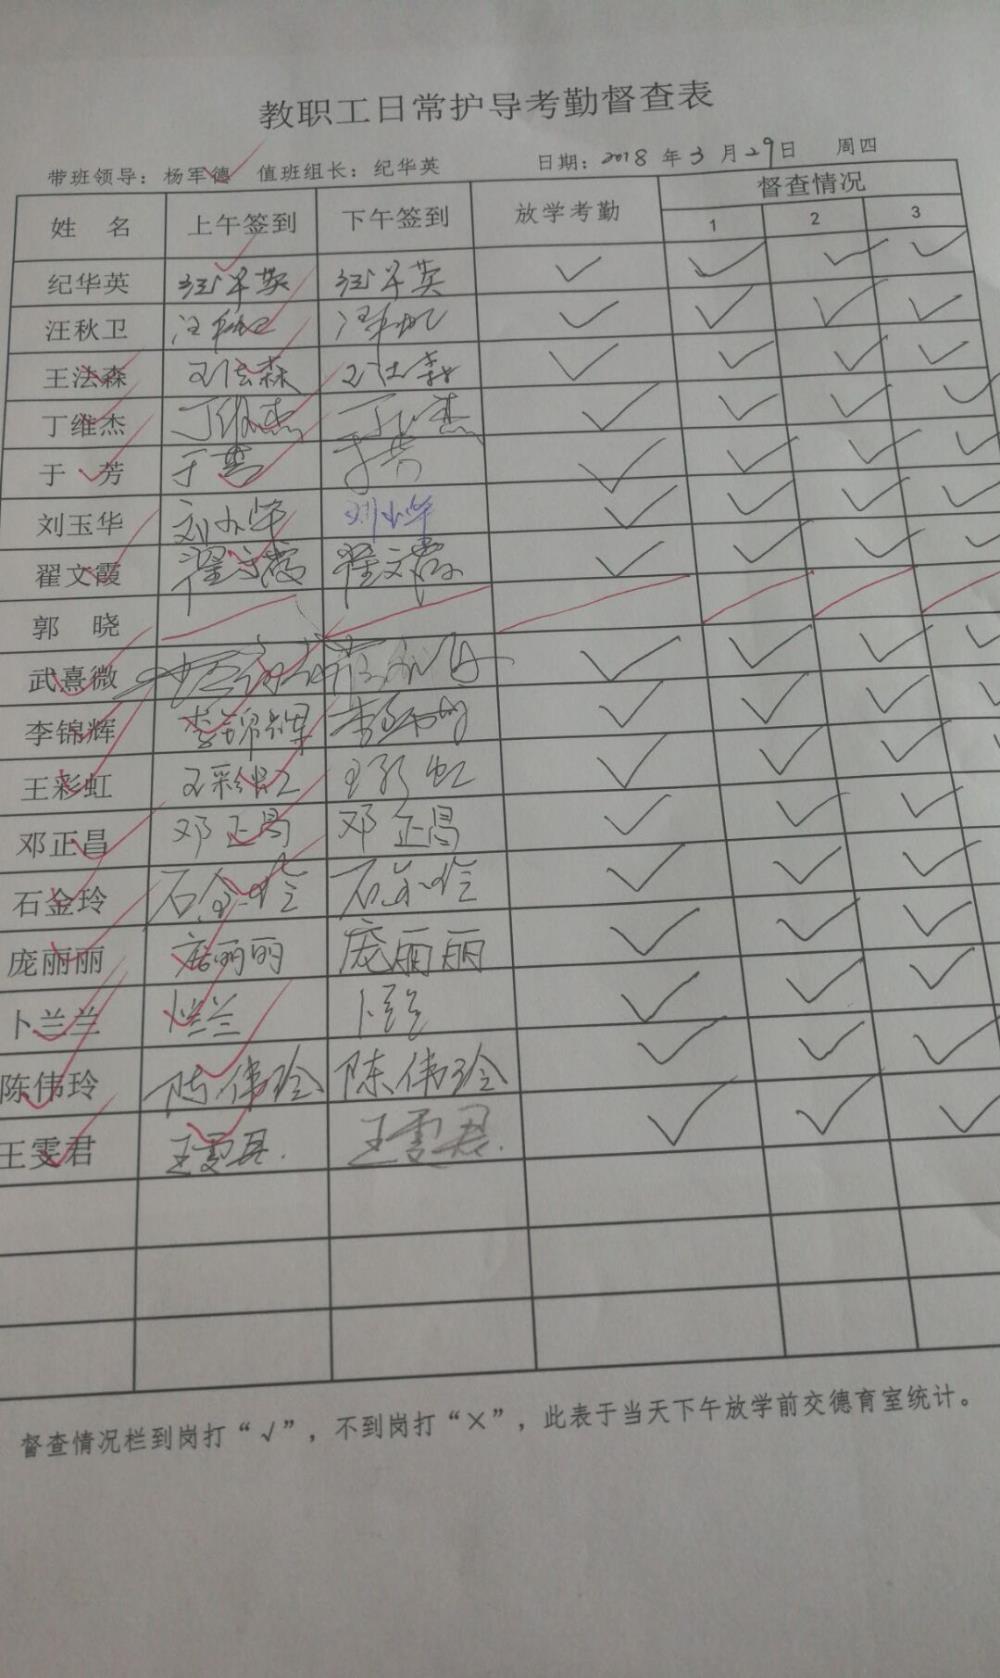 教职工日常护导考勤督查表
带班领导：杨军德 值班组长：纪华英 日期：2018年3月29日 周四
姓 名 上午签到 下午签到 放学考勤 督查情况
1 2 3
纪华英 ✓ ✓ ✓ ✓
汪秋卫 ✓ ✓ ✓ ✓
王法森 王法森 王法森 ✓ ✓ ✓ ✓
丁维杰 丁维杰 丁维杰 ✓ ✓ ✓ ✓
于 芳 于芳 于芳 ✓ ✓ ✓ ✓
刘玉华 ✓ ✓ ✓ ✓
翟文霞 翟文霞 翟文霞 ✓ ✓ ✓ ✓
郭 晓
武熹微 ✓ ✓ ✓ ✓
李锦辉 李锦辉 ✓ ✓ ✓ ✓
王彩虹 王彩虹 王彩虹 ✓ ✓ ✓ ✓
邓正昌 邓正昌 邓正昌 ✓ ✓ ✓
石金玲 石金玲 石金玲 ✓ ✓ ✓
庞丽丽 庞丽丽 庞丽丽 ✓ ✓ ✓
卜兰兰 卜兰兰 卜兰兰 ✓ ✓ ✓
陈伟玲 陈伟玲 陈伟玲 ✓ ✓ ✓
王雯君 王雯君. 王雯君. ✓ ✓ ✓
督查情况栏到岗打“√”，不到岗打“×”，此表于当天下午放学前交德育室统计。